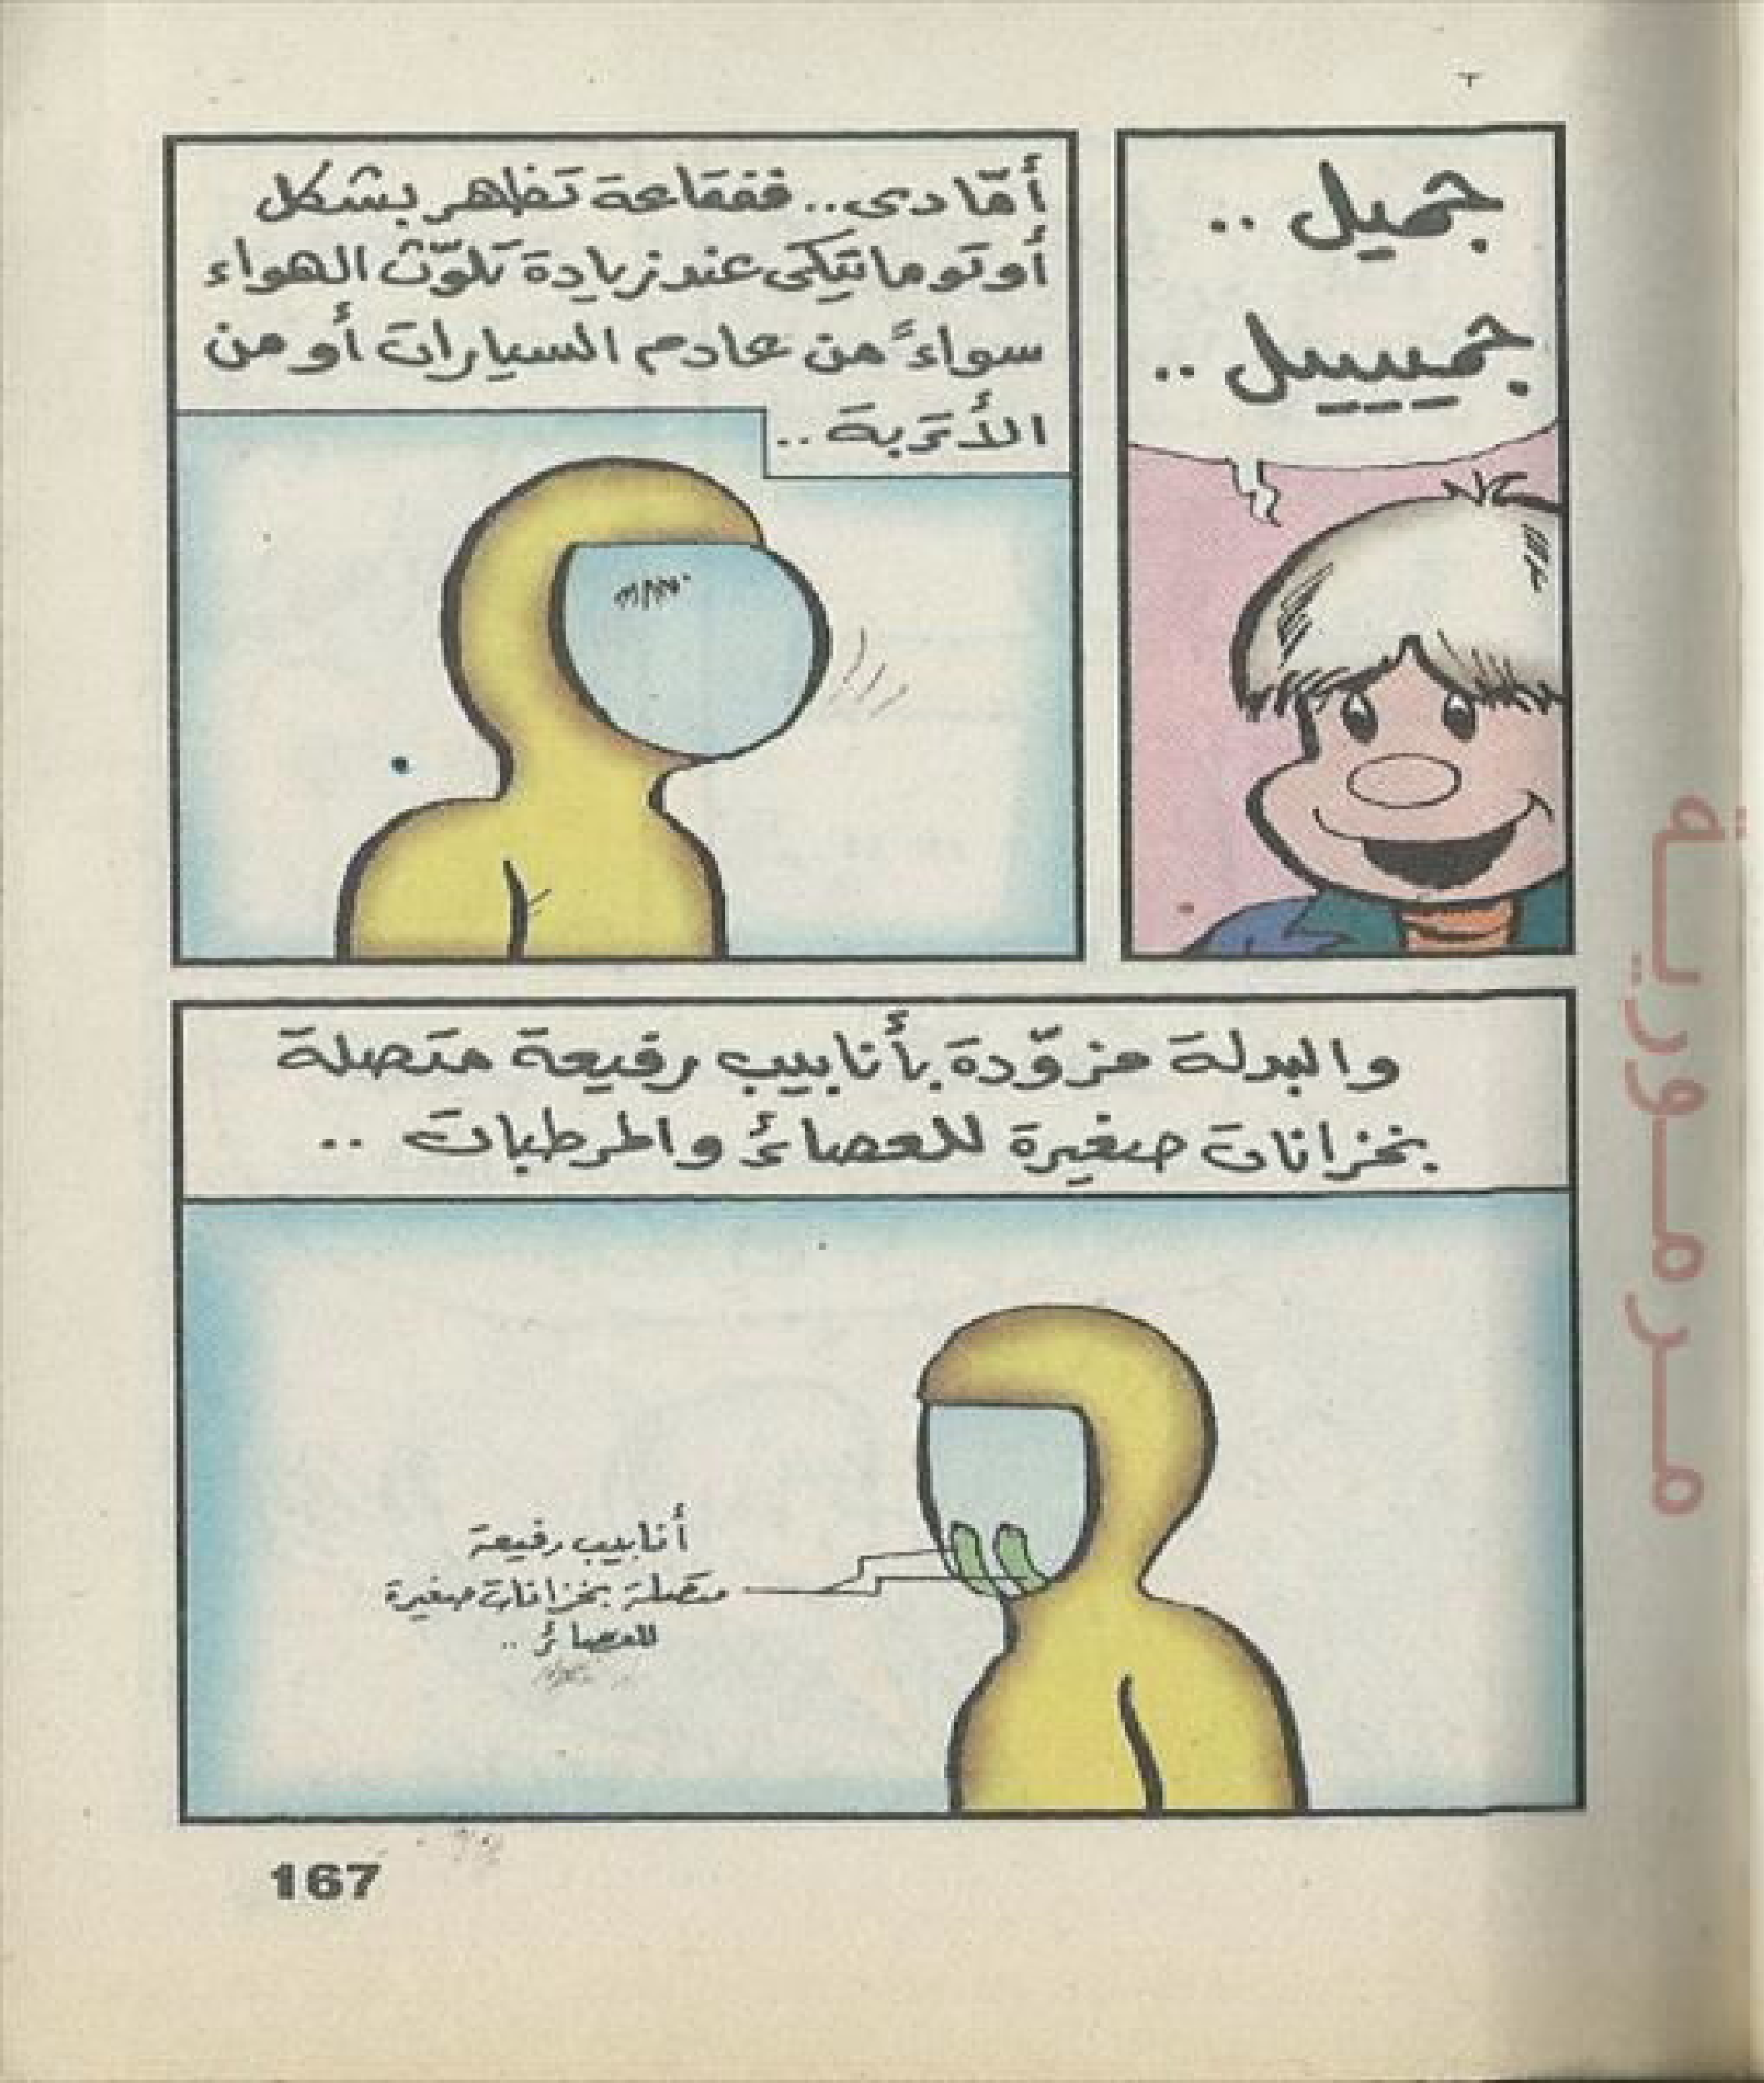 جميل ..
جميييل ..
أمّا دى.. ففقاعة تظهر بشكل
أوتوماتيكى عند زيادة تلوّث الهواء
سواءً من عادم السيارات أو من
الأتربة ..
والبدلة مزوّدة بأنابيب رفيعة متصلة
بخزانات صغيرة للعصائر والمرطبات ..
أنابيب رفيعة
متصلة بخزانات صغيرة
للعصائر ..
167
مرمورية